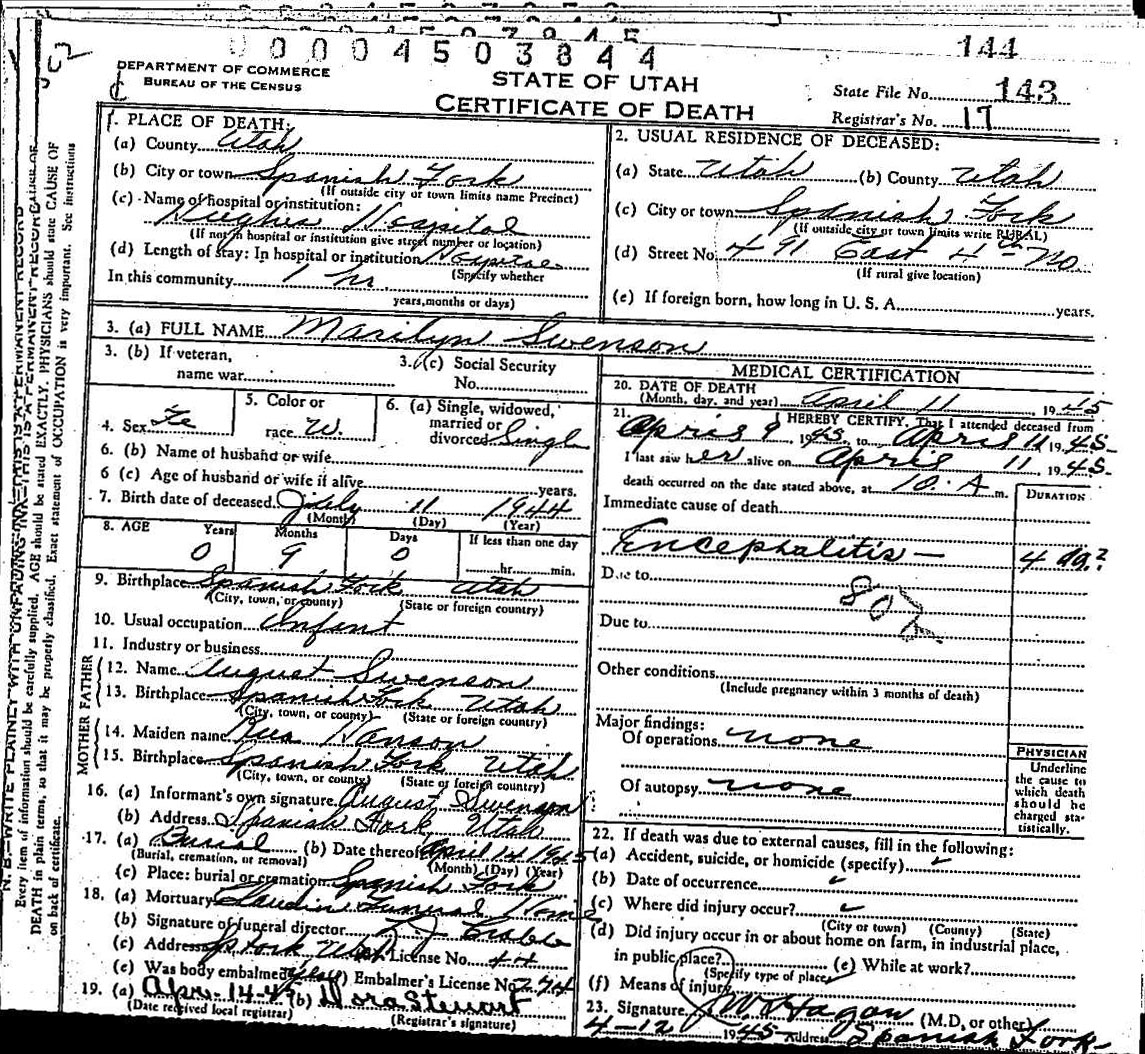 0 0 0 0 4 5 0 3 8 4 4
144
DEPARTMENT OF COMMERCE
BUREAU OF THE CENSUS
STATE OF UTAH
CERTIFICATE OF DEATH
State File No. 143
Registrar's No. 17
1. PLACE OF DEATH:
(a) County Utah
(b) City or town Spanish Fork
(If outside city or town limits name Precinct)
(c) Name of hospital or institution:
Hughes Hospital
(If not in hospital or institution give street number or location)
(d) Length of stay: In hospital or institution Hospital
(Specify whether
In this community 1 hr.
years, months or days)
2. USUAL RESIDENCE OF DECEASED:
(a) State Utah (b) County Utah
(c) City or town Spanish Fork
(If outside city or town limits write RURAL)
(d) Street No. 491 East 4th No
(If rural give location)
(e) If foreign born, how long in U. S. A. years.
3. (a) FULL NAME Marilyn Swenson
3. (b) If veteran,
name war
3. (c) Social Security
No.
4. Sex Fe
5. Color or
race W.
6. (a) Single, widowed,
married or
divorced Single
6. (b) Name of husband or wife
6 (c) Age of husband or wife if alive years.
7. Birth date of deceased July 11 1944
(Month) (Day) (Year)
8. AGE Years Months Days If less than one day
0 9 0 hr. min.
9. Birthplace Spanish Fork Utah
(City, town, or county) (State or foreign country)
10. Usual occupation Infant
11. Industry or business
FATHER
12. Name August Swenson
13. Birthplace Spanish Fork Utah
(City, town, or county) (State or foreign country)
MOTHER
14. Maiden name Hanson
15. Birthplace Spanish Fork Utah
(City, town, or county) (State or foreign country)
16. (a) Informant's own signature August Swenson
(b) Address Spanish Fork, Utah
17. (a) Burial (b) Date thereof April 14 1945
(Burial, cremation, or removal) (Month) (Day) (Year)
(c) Place: burial or cremation Spanish Fork
18. (a) Mortuary Claudin Funeral Home
(b) Signature of funeral director
(c) Address Sp Fork Utah License No. 44
(e) Was body embalmed? yes (f) Embalmer's License No. 274
19. (a) Apr-14-45 (b) Nora Stewart
(Date received local registrar) (Registrar's signature)
MEDICAL CERTIFICATION
20. DATE OF DEATH
(Month, day, and year) April 11 1945
21. I HEREBY CERTIFY, That I attended deceased from
April 9 1945, to April 11, 1945
I last saw her alive on April 11, 1945
death occurred on the date stated above, at 10. A m.
DURATION
Immediate cause of death
Encephalitis — 4 da?
Due to
80
Due to
Other conditions
(Include pregnancy within 3 months of death)
Major findings:
Of operations none
Of autopsy none
PHYSICIAN
Underline
the cause to
which death
should be
charged sta-
tistically.
22. If death was due to external causes, fill in the following:
(a) Accident, suicide, or homicide (specify)
(b) Date of occurrence
(c) Where did injury occur?
(City or town) (County) (State)
(d) Did injury occur in or about home on farm, in industrial place,
in public place? (e) While at work?
(Specify type of place)
(f) Means of injury
23. Signature J W Hagan (M.D, or other)
4-12 1945 Address Spanish Fork
N. B.—WRITE PLAINLY WITH UNFADING INK—THIS IS A PERMANENT RECORD
Every item of information should be carefully supplied. AGE should be stated EXACTLY. PHYSICIANS should state CAUSE OF
DEATH in plain terms, so that it may be properly classified. Exact statement of OCCUPATION is very important. See instructions
on back of certificate.